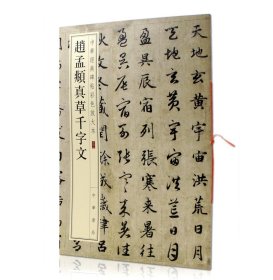 天地玄黃宇宙洪荒日月
天地玄黃宇宙洪荒日月
盈昃辰宿列張寒來暑往
盈昃辰宿列張寒來暑往
秋收冬藏閏餘成歲律吕
中華經典碑帖彩色放大本
趙孟頫真草千字文
中華書局